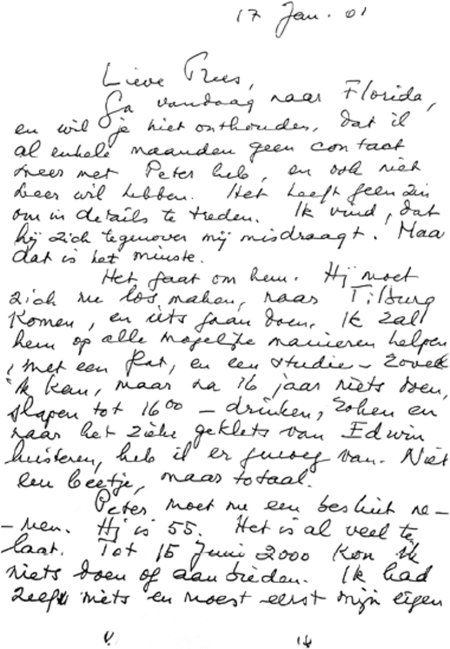 17 Jan. 01
Lieve Trees,
Ga vandaag naar Florida,
en wil je niet onthouden, dat ik
al enkele maanden geen contact
meer met Peter heb, en ook niet
meer wil hebben. Het heeft geen zin
om in details te treden. Ik vind, dat
hij zich tegenover mij misdraagt. Maa
dat is het minste.
Het gaat om hem. Hij moet
zich nu los maken, naar Tilburg
komen, en iets gaan doen. Ik zal
hem op alle mogelijke manieren helpen
, met een flat, en een studie - zoveel
ik kan, maar na 16 jaar niets doen,
slapen tot 16 00 - drinken, roken en
naar het zieke geklets van Edwin
luisteren, heb ik er genoeg van. Niet
een beetje, maar totaal.
Peter moet nu een besluit ne-
- men. Hij is 55. Het is al veel te
laat. Tot 15 Juni 2000 kon ik
niets doen of aanbieden. Ik had
zelf niets en moest eerst mijn eigen